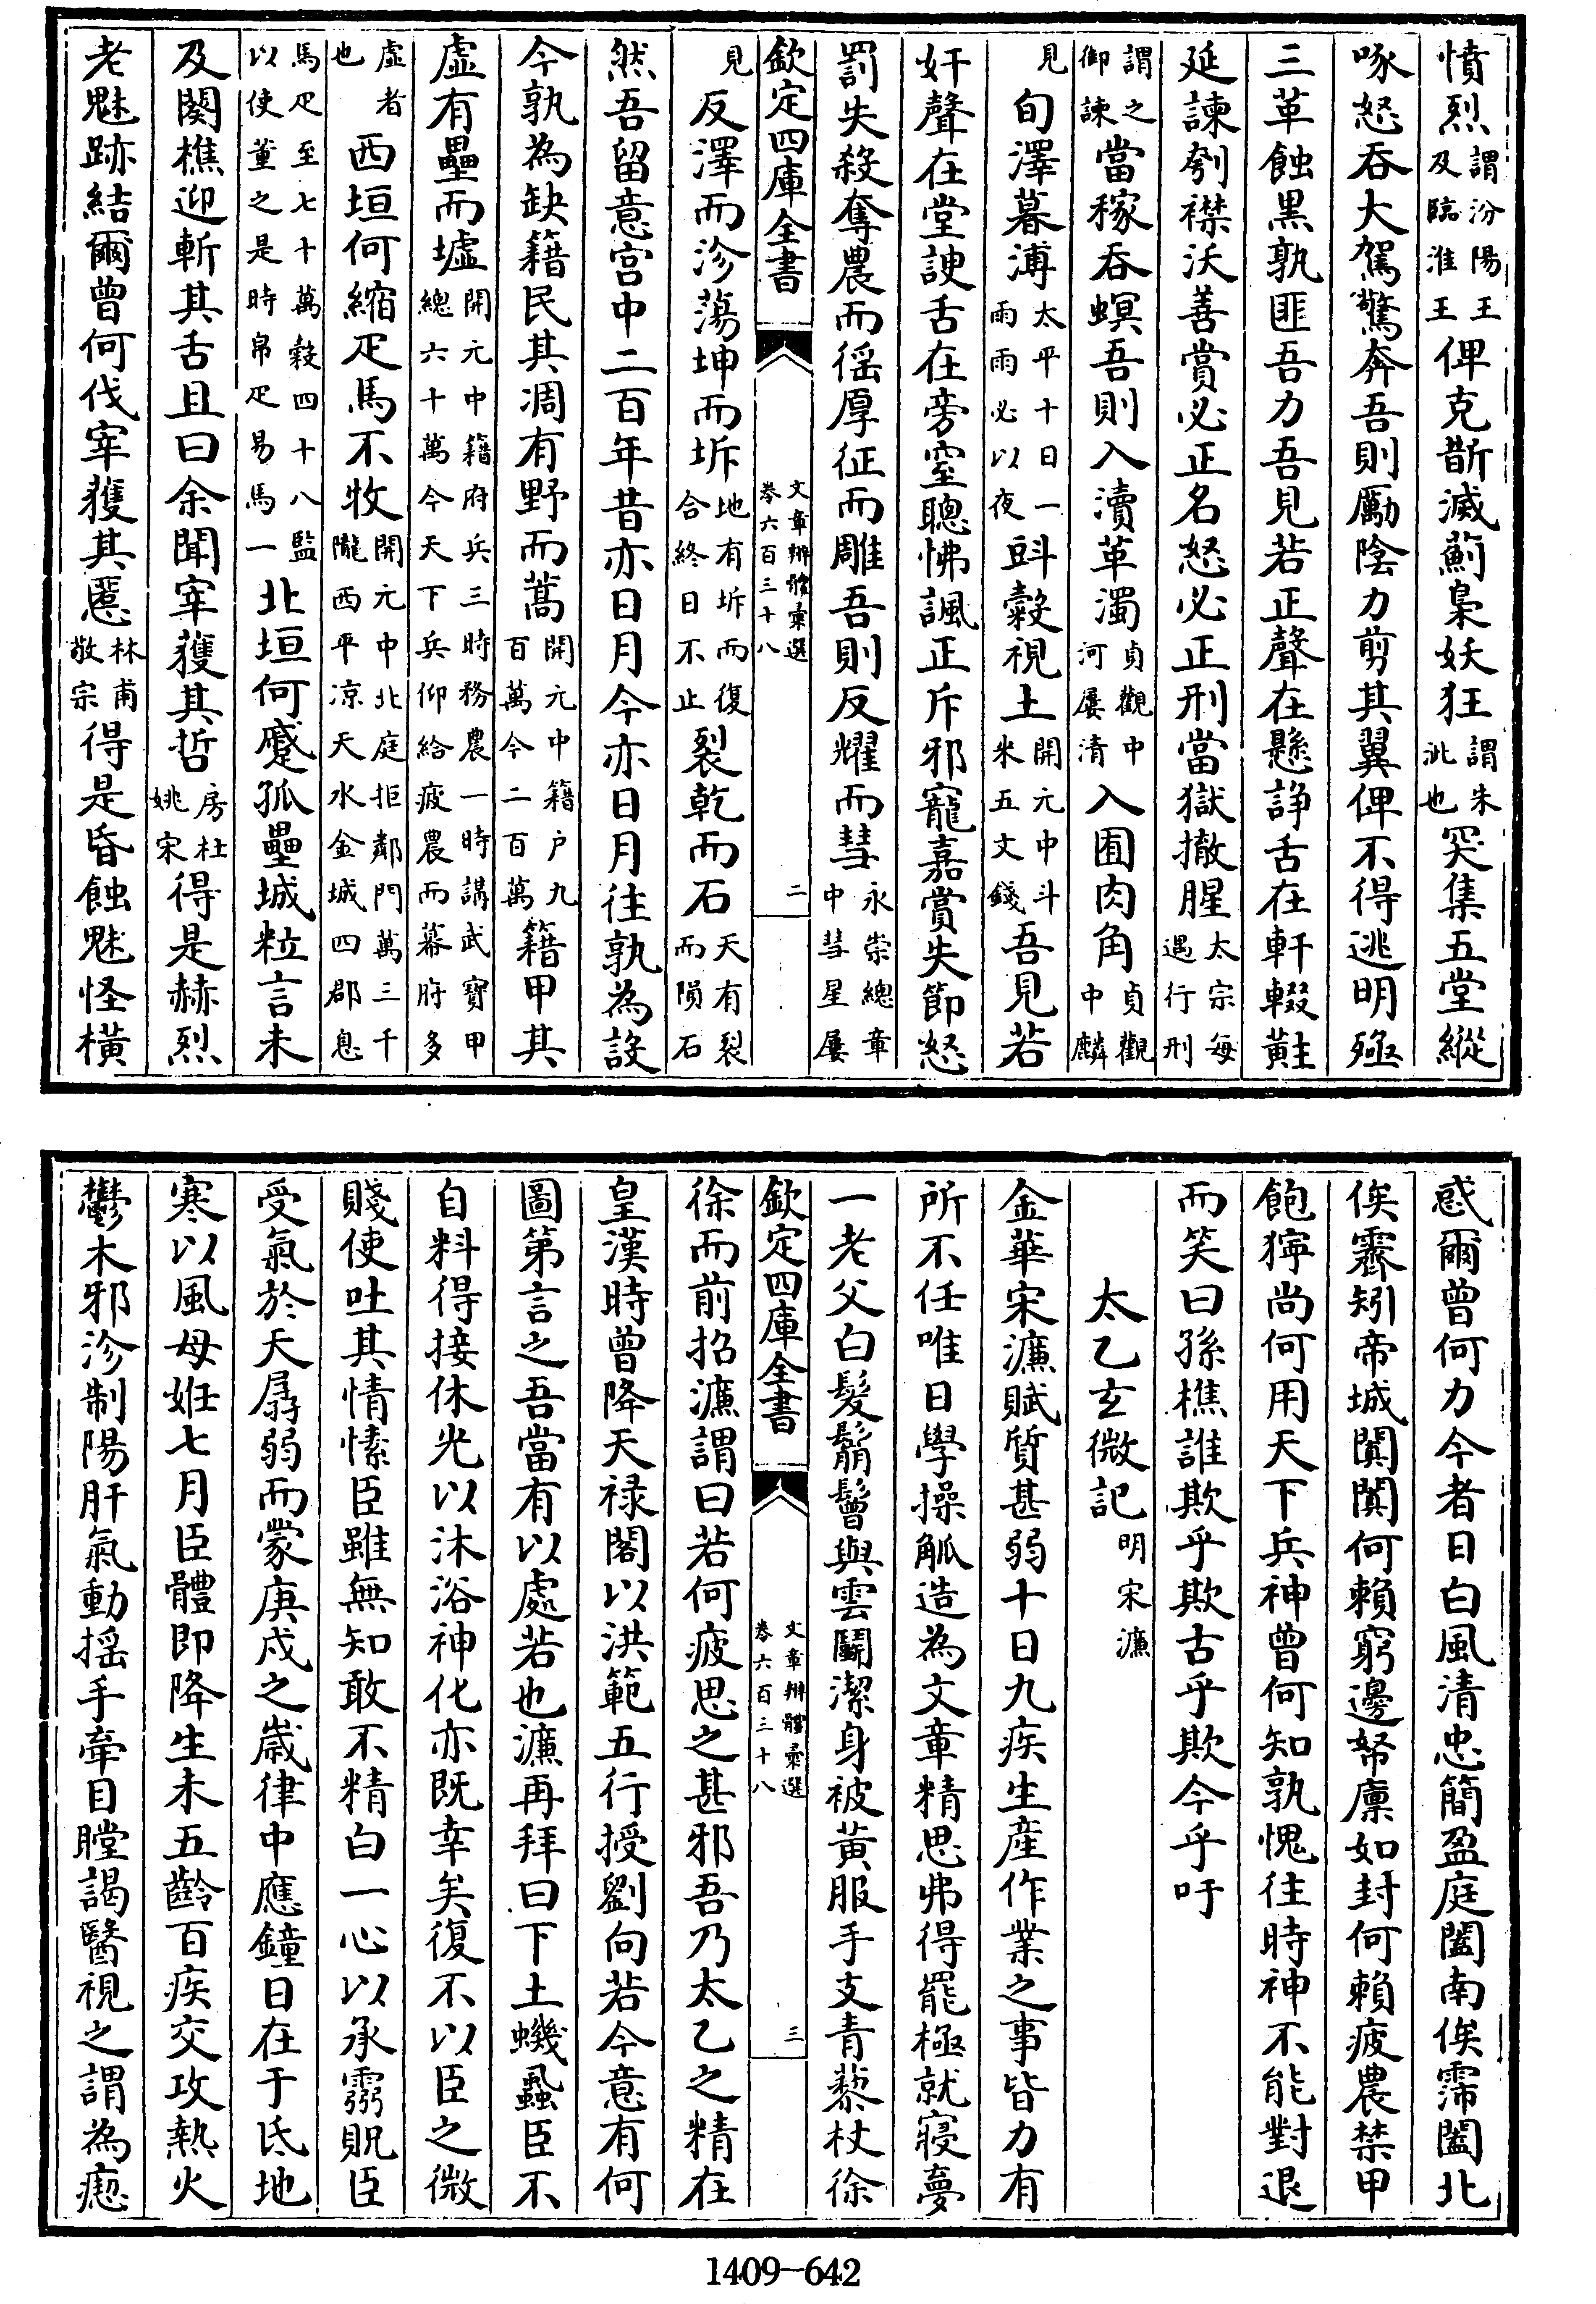 憤烈謂汾陽王及臨淮王俾克斮滅薊梟妖狂謂朱泚也突集五堂縱
啄怒吞大駕驚奔吾則勵陰力剪其翼俾不得逃明殛
三革蝕黒孰匪吾力吾見若正聲在懸諍舌在軒輟黈
延諫刳襟沃善賞必正名怒必正刑當獄撤腥太宗每遇行刑
謂之御諫當稼吞螟吾則入瀆革濁貞觀中河屢清入囿肉角貞觀中麟
見旬澤暮溥太平十日一雨雨必以夜㪷糓視土開元中斗米五文錢吾見若
奸聲在堂諛舌在旁窒聰怫諷正斥邪寵嘉賞失節怒
罰失殺奪農而徭厚征而雕吾則反耀而彗永崇總章中彗星屢
欽定四庫全書
文章辨體彚選
卷六百三十八
二
見反澤而沴蕩坤而坼地有坼而復合終日不止裂乾而石天有裂而隕石
然吾留意宫中二百年昔亦日月今亦日月往孰為設
今孰為缺籍民其凋有野而蒿開元中籍户九百萬今二百萬籍甲其
虚有壘而墟開元中籍府兵三時務農一時講武寳甲總六十萬今天下兵仰給疲農而幕府多
虚者也西垣何縮疋馬不牧開元中北庭拒鄰門萬三千隴西平凉天水金城四郡息
馬疋至七十萬穀四十八監以使董之是時帛疋易馬一北垣何蹙孤壘城粒言未
及闋樵迎斬其舌且曰余聞宰獲其哲房杜姚宋得是赫烈
老魅跡結爾曾何伐宰獲其慝林甫敬宗得是昏蝕魅怪横
惑爾曾何力今者日白風清忠簡盈庭闔南俟霈闔北
俟霽矧帝城闐闐何賴窮邊帑廪如封何賴疲農禁甲
飽獰尚何用天下兵神曾何知孰愧往時神不能對退
而笑曰孫樵誰欺乎欺古乎欺今乎吁
太乙玄微記明宋濂
金華宋濂賦質甚弱十日九疾生産作業之事皆力有
所不任唯日學操觚造為文章精思弗得罷極就寢夢
一老父白髮鬅鬙與雲鬬潔身被黄服手支青藜杖徐
欽定四庫全書
文章辨體彚選
卷六百三十八
三
徐而前招濂謂曰若何疲思之甚邪吾乃太乙之精在
皇漢時曾降天禄閣以洪範五行授劉向若今意有何
圖第言之吾當有以處若也濂再拜曰下土蟣蝨臣不
自料得接休光以沐浴神化亦既幸矣復不以臣之微
賤使吐其情愫臣雖無知敢不精白一心以承靈貺臣
受氣於天孱弱而蒙庚戍之歲律中應鐘日在于氐地
寒以風母姙七月臣體即降生未五齡百疾交攻熱火
鬱木邪沴制陽肝氣動揺手牽目瞠謁醫視之謂為瘛
1409—642